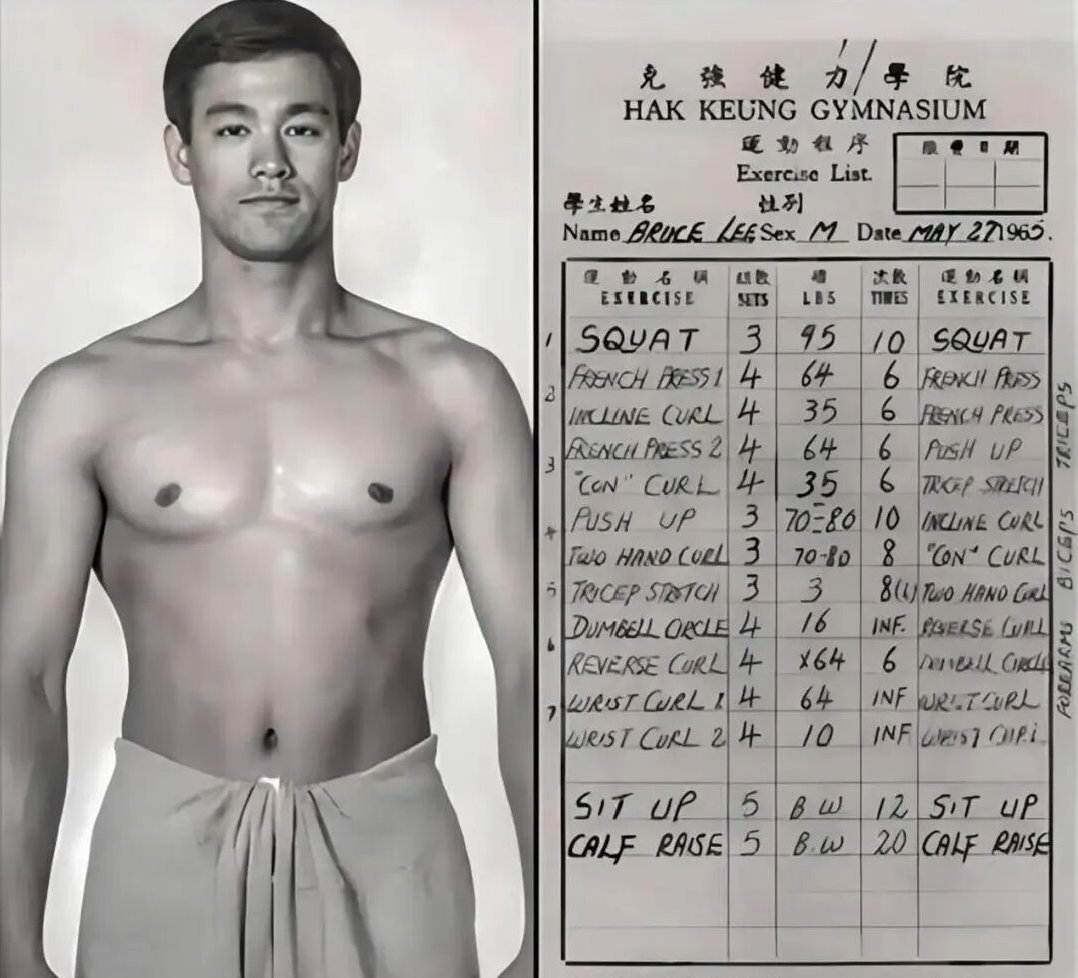 克強健力學院
HAK KEUNG GYMNASIUM
運動程序
Exercise List.
學生姓名 性別
Name BRUCE LEE Sex M Date MAY 27 1965.
運動名稱 組數 磅 次數 運動名稱
EXERCISE SETS LBS TIMES EXERCISE
1 SQUAT 3 95 10 SQUAT
2 FRENCH PRESS 1 4 64 6 FRENCH PRESS
INCLINE CURL 4 35 6 FRENCH PRESS
3 FRENCH PRESS 2 4 64 6 PUSH UP
"CON" CURL 4 35 6 TRICEP STRETCH
4 PUSH UP 3 70-80 10 INCLINE CURL
TWO HAND CURL 3 70-80 8 "CON" CURL
5 TRICEP STRETCH 3 3 8(1) TWO HAND CURL
DUMBELL CIRCLE 4 16 INF. REVERSE CURL
6 REVERSE CURL 4 x64 6 DUMBELL CIRCLE
7 WRIST CURL 1 4 64 INF WRIST CURL
WRIST CURL 2 4 10 INF WRIST CURL
SIT UP 5 B W 12 SIT UP
CALF RAISE 5 B.W 20 CALF RAISE
TRICEPS
BICEPS
FOREARMS